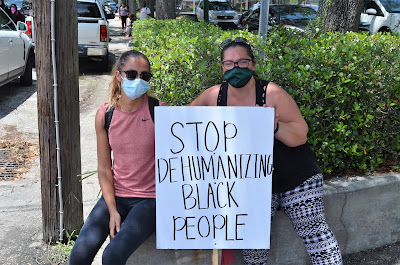 STOP
DEHUMANIZING
BLACK
PEOPLE